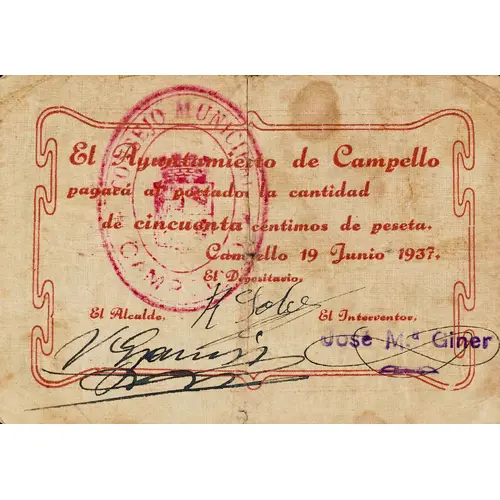 CONSEJO MUNICIPAL
CAMPELLO
El Ayuntamiento de Campello
pagará al portador la cantidad
de cincuenta céntimos de peseta.
Campello 19 Junio 1937.
El Depositario,
El Alcalde,
El Interventor,
José Mª Giner